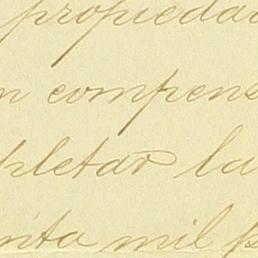 propiedad
n compens
pletar la
nta mil p